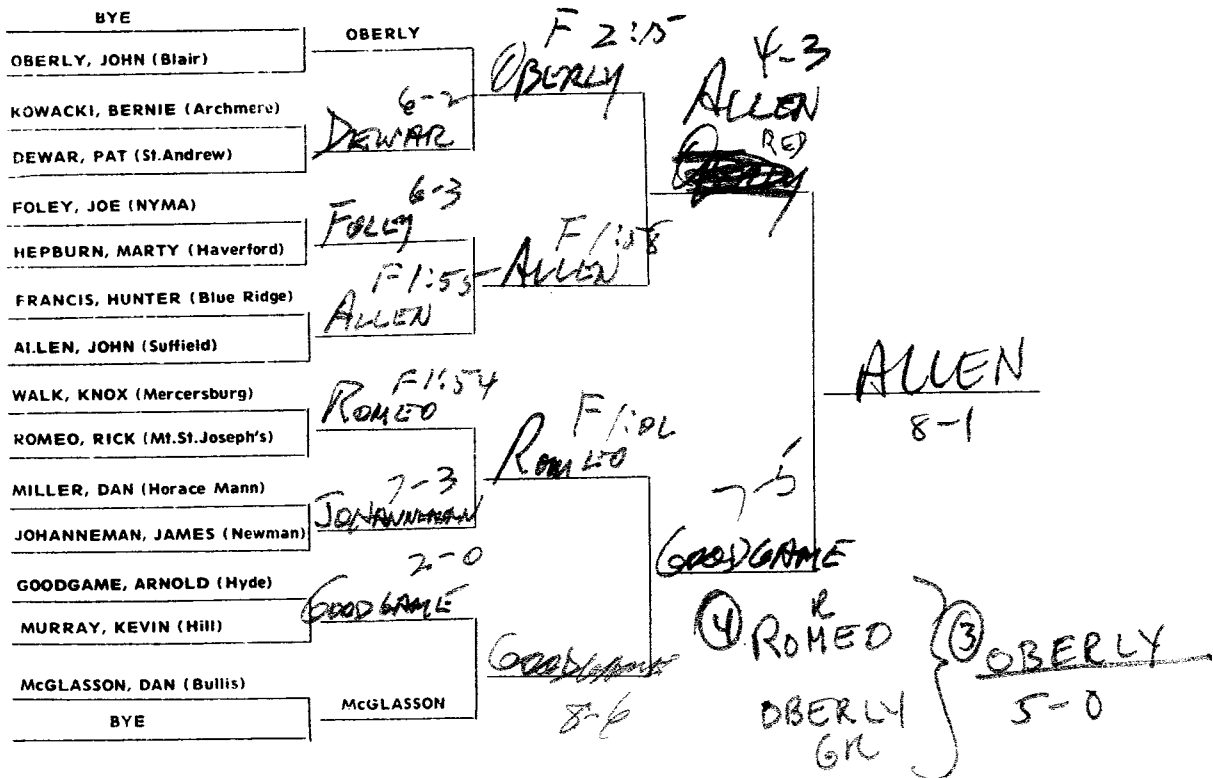 BYE
OBERLY, JOHN (Blair)
KOWACKI, BERNIE (Archmere)
DEWAR, PAT (St.Andrew)
FOLEY, JOE (NYMA)
HEPBURN, MARTY (Haverford)
FRANCIS, HUNTER (Blue Ridge)
ALLEN, JOHN (Suffield)
WALK, KNOX (Mercersburg)
ROMEO, RICK (Mt.St.Joseph's)
MILLER, DAN (Horace Mann)
JOHANNEMAN, JAMES (Newman)
GOODGAME, ARNOLD (Hyde)
MURRAY, KEVIN (Hill)
McGLASSON, DAN (Bullis)
BYE
OBERLY
6-2
DEWAR
6-3
FOLEY
F 1:55
ALLEN
F 1:54
ROMEO
7-3
JOHANNEMAN
2-0
GOODGAME
McGLASSON
F 2:15
OBERLY
F 1:58
ALLEN
F 1:02
ROMEO
GOODGAME
8-6
4-3
ALLEN
RED
7-5
GOODGAME
ALLEN
8-1
R
4 ROMEO
OBERLY
GR
3 OBERLY
5-0